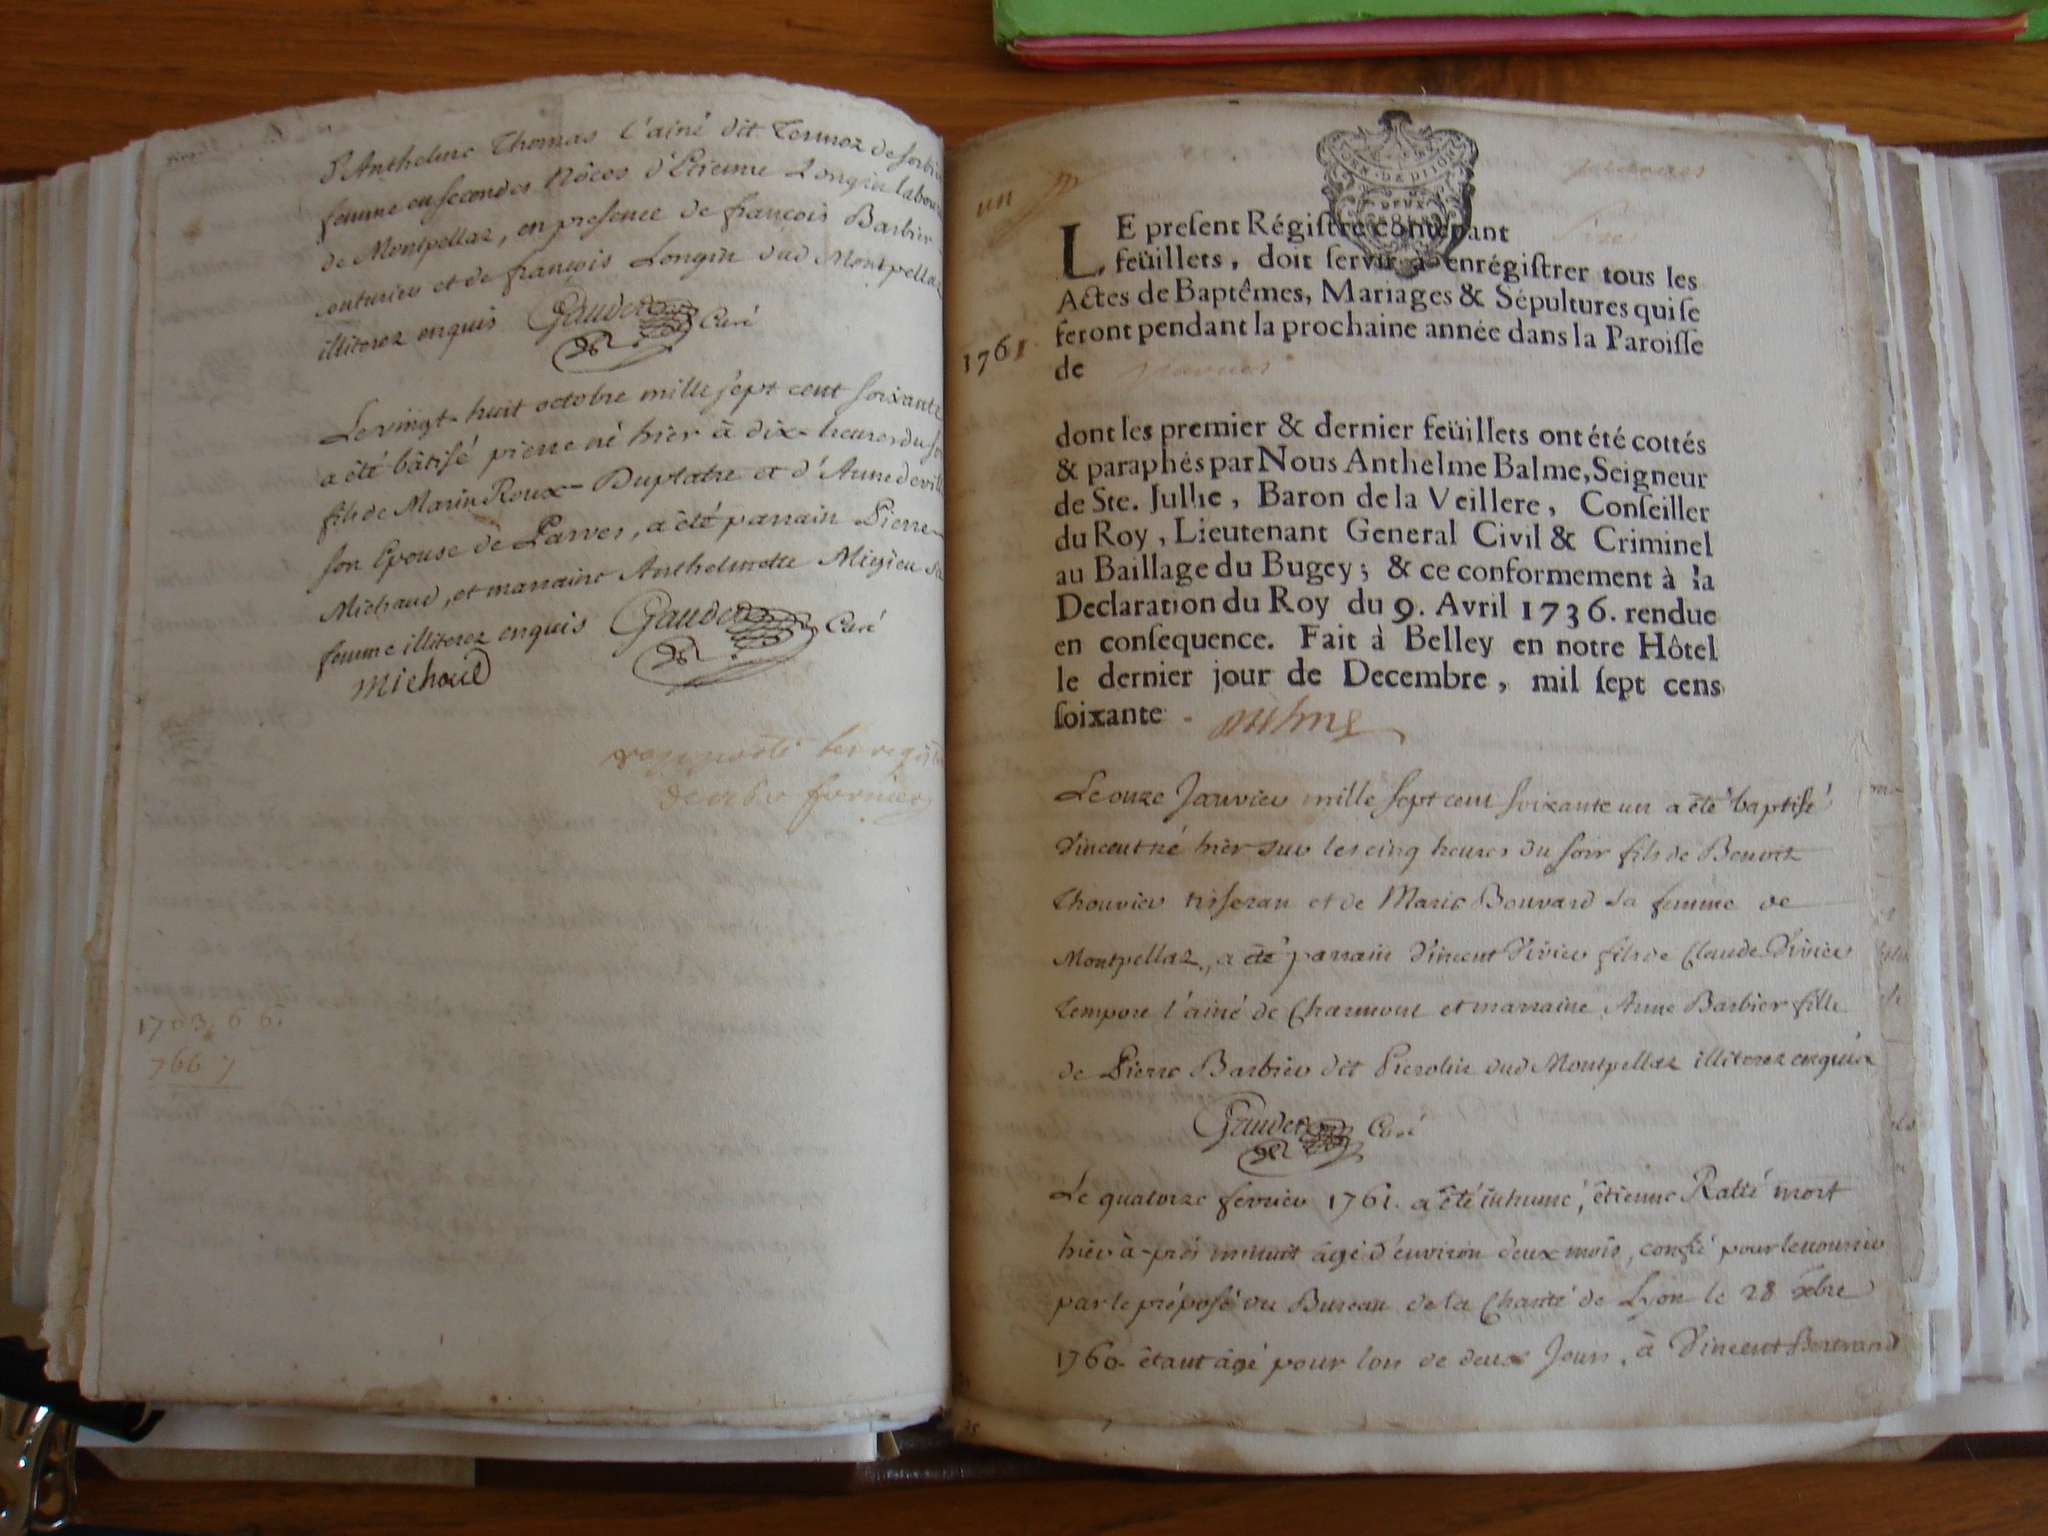 d'Anthelme Thomas l'ainé dit Termoz de
femme en secondes Nôces d'Etienne Longin
de Montpellaz, en presence de françois Barbier
couturier et de françois Longin dud Montpellaz
illiterez enquis Gaudet Curé
Le vingt-huit octobre mille sept cent soixante
a été bâtisé pierre né hier à dix heures du
fils de Marin Roux-Duplatre et d'Anne
son Epouse de Parves, a été parrain Pierre
Michaud, et marraine Anthelmette Migieu sa
femme illiterez enquis Gaudet Curé
Michoud
1761
un
LE present Régistre contenant
feüillets, doit servir à enrégistrer tous les
Actes de Baptêmes, Mariages & Sépultures qui se
feront pendant la prochaine année dans la Paroisse
de parves
dont les premier & dernier feüillets ont été cottés
& paraphés par Nous Anthelme Balme, Seigneur
de Ste. Jullie, Baron de la Veillere, Conseiller
du Roy, Lieutenant General Civil & Criminel
au Baillage du Bugey; & ce conformement à la
Declaration du Roy du 9. Avril 1736. rendue
en consequence. Fait à Belley en notre Hôtel
le dernier jour de Decembre, mil sept cens
soixante
Le onze Janvier mille sept cent soixante un a été baptisé
Vincent né hier sur les cinq heures du soir fils de Benoit
Thouvier tisseran et de Marie Bouvard sa femme de
Montpellaz, a été parrain Vincent Vivier fils de Claude Vivier
Tempore l'ainé de Charmont et marraine Anne Barbier fille
de Pierre Barbier dit Pierolin dud Montpellaz illiterez enquis
Gaudet Curé
Le quatorze fevrier 1761. a été inhumé, étienne Ratté mort
hier à-près minuit âgé d'environ deux mois, confié pour le nourrir
par le préposé du Bureau de la Charité de Lyon le 28 xbre
1760. étant âgé pour lors de deux Jours, à Vincent Bertrand